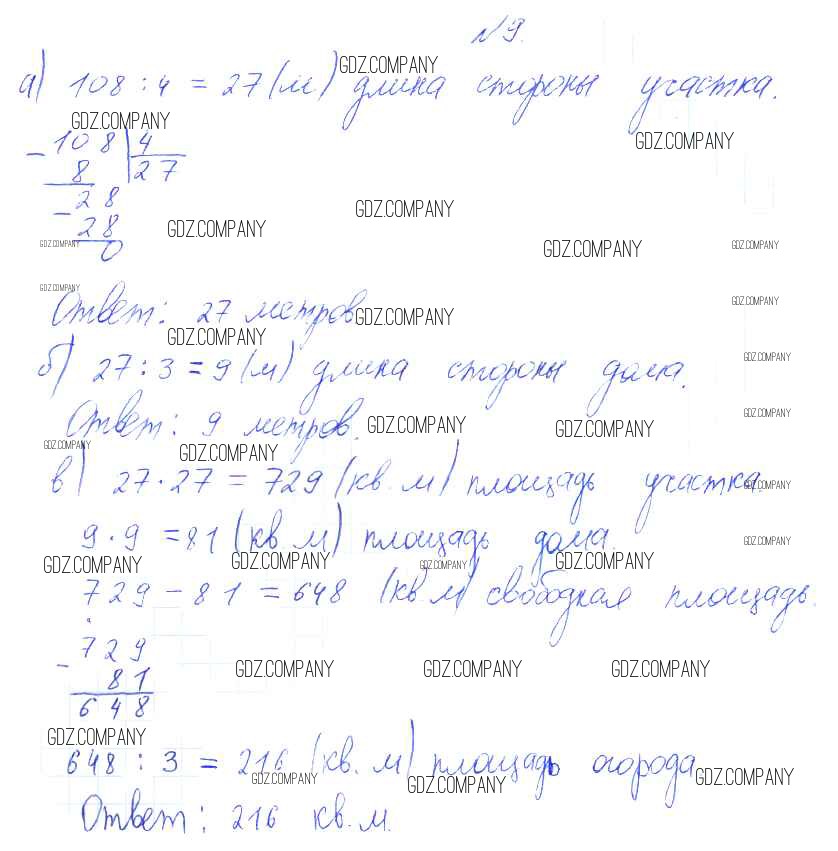 № 9.
а) 108 : 4 = 27 (м) длина стороны участка.
GDZ.COMPANY
GDZ.COMPANY
- 108 | 4
GDZ.COMPANY
8 27
- 28
GDZ.COMPANY
28 GDZ.COMPANY
GDZ.COMPANY GDZ.COMPANY GDZ.COMPANY
0
GDZ.COMPANY
Ответ: 27 метров
GDZ.COMPANY
GDZ.COMPANY
GDZ.COMPANY
GDZ.COMPANY
б) 27 : 3 = 9 (м) длина стороны дома.
Ответ: 9 метров.
GDZ.COMPANY
GDZ.COMPANY GDZ.COMPANY
GDZ.COMPANY GDZ.COMPANY
в) 27 · 27 = 729 (кв. м) площадь участка.
GDZ.COMPANY
9 · 9 = 81 (кв м) площадь дома.
GDZ.COMPANY
GDZ.COMPANY GDZ.COMPANY GDZ.COMPANY GDZ.COMPANY
729 - 81 = 648 (кв м) свободная площадь.
- 729
81
GDZ.COMPANY GDZ.COMPANY GDZ.COMPANY
648
GDZ.COMPANY
648 : 3 = 216 (кв. м) площадь огорода
GDZ.COMPANY GDZ.COMPANY GDZ.COMPANY
Ответ: 216 кв. м.